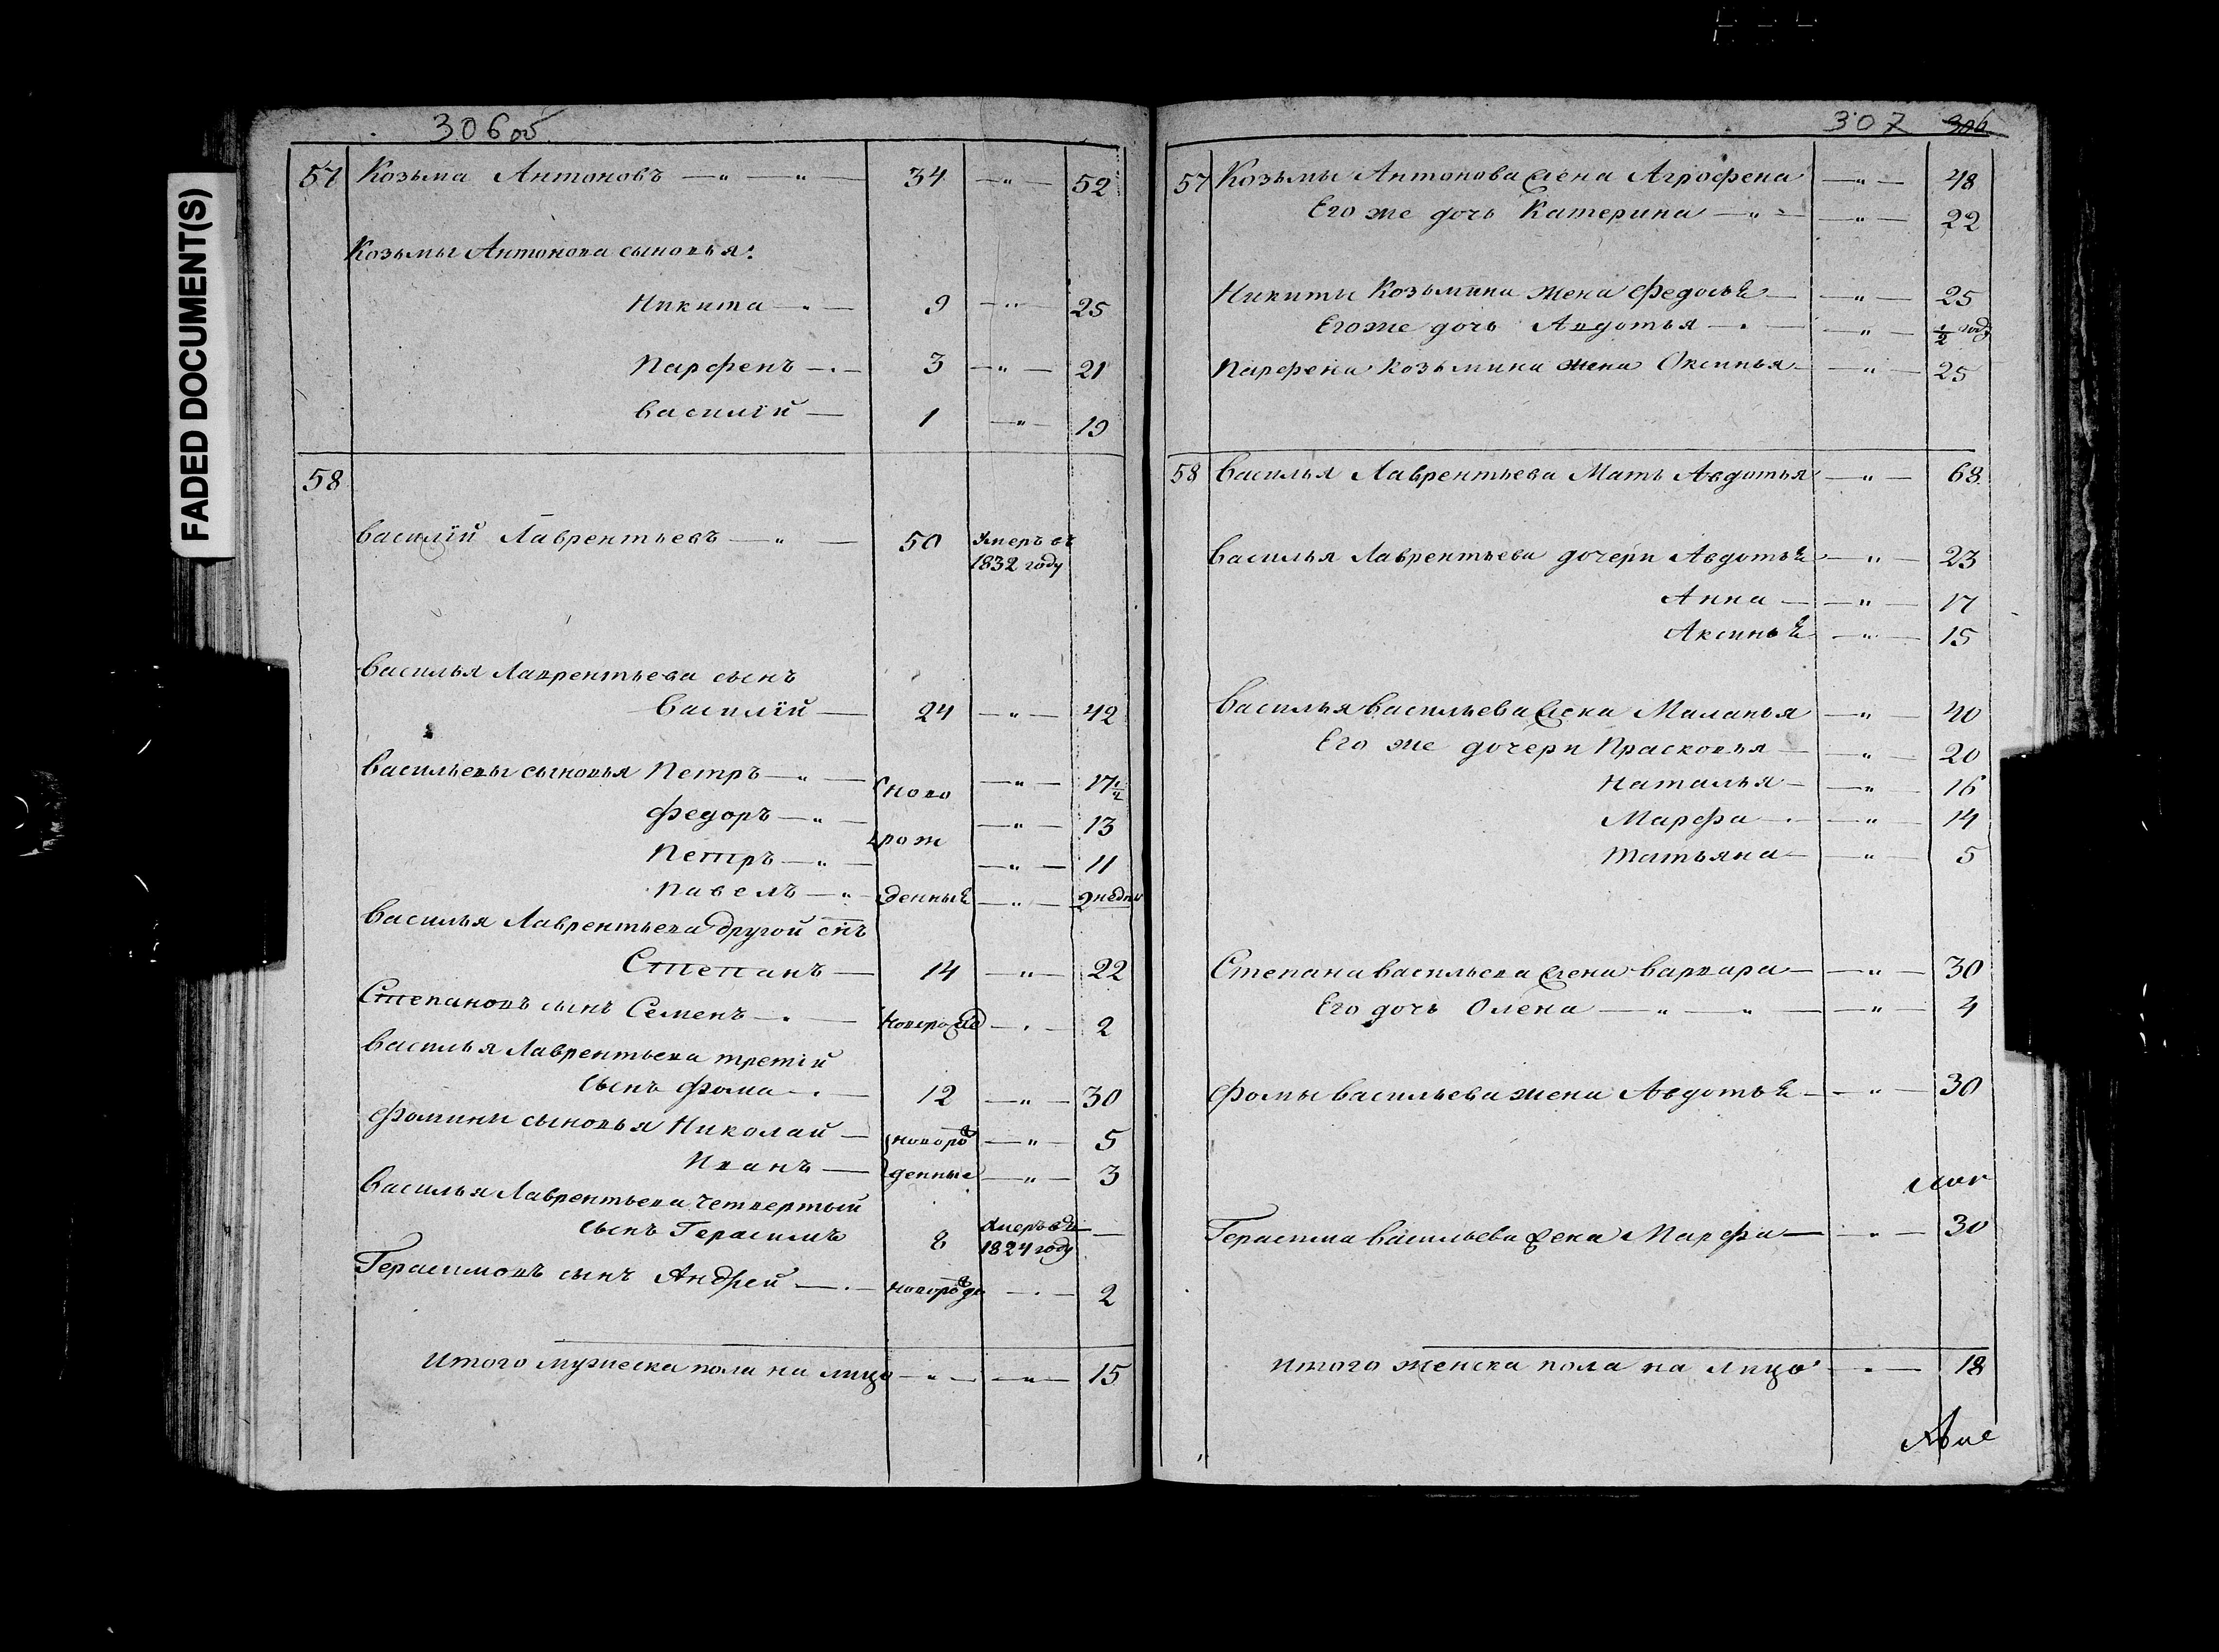 FADED DOCUMENT(S)
306 об
57 Козьма Антоновъ — " — " — 34 — " — 52
Козьмы Антонова сыновья:
Никита — " — 9 — " — 25
Парфенъ — " — 3 — " — 21
Василій — 1 — " — 19
58
Василій Лаврентьевъ — " — 50 Умеръ въ 1832 году
Василья Лаврентьева сынъ
Василій — 24 — " — 42
Васильевы сыновья Петръ — " — Ново — " — 17 1/2
Федоръ — " — рож — " — 13
Петръ — " — — " — 11
Павелъ — " — денныѣ — " — 2 недѣли
Василья Лаврентьева другой снъ
Степанъ — 14 — " — 22
Степановъ сынъ Семенъ — " —Новорожд — " — 2
Василья Лаврентьева третій
сынъ Фома — " — 12 — " — 30
Фомины сыновья Николай — новорож — " — 5
Иванъ — денные — " — 3
Василья Лаврентьева четвертый
сынъ Герасимъ 8 Умеръ въ 1824 году —
Герасимовъ сынъ Андрей — " — новорожде — " — 2
Итого мужеска пола на лицо — " — — " — 15
307 306
57 Козьмы Антонова жена Агрофена — " — 48
Его же дочь Катерина — " — — " — 22
Никиты Козьмина жена Федосьѣ — — " — 25
Его же дочь Авдотья — " — — " — 1/2 году
Парфена Козьмина жена Оксинья — — " — 25
58 Василья Лаврентьева Мать Авдотья — " — 68
Василья Лаврентьева дочери Авдотьѣ — " — 23
Анна — — " — 17
Аксиньѣ — " — 15
Василья Васильева жена Маланья — " — 40
Его же дочери Прасковья — — " — 20
Наталья — — " — 16
Марфа — " — — " — 14
Татьяна — — " — 5
Степана Васильева жена Варвара — — " — 30
Его дочь Олена — " — " — — " — 4
Фомы Васильева жена Авдотьѣ — — " — 30
Герасима Васильева жена Марфа — — " — 30
Итого женска пола на лицо — " — 18